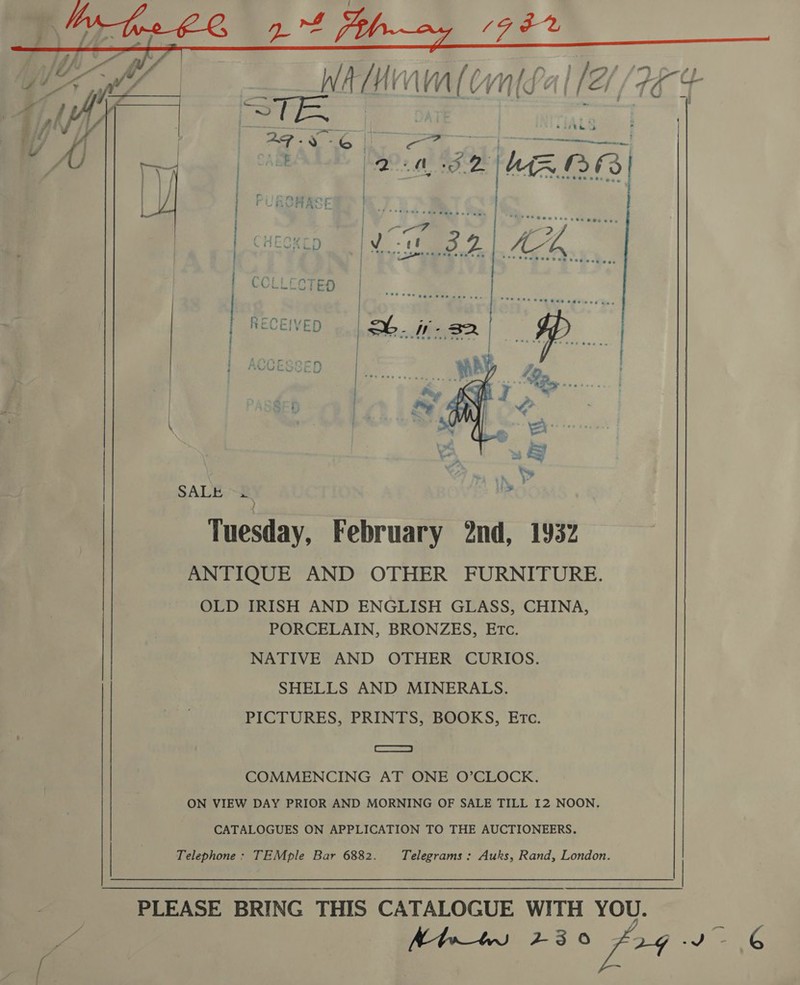 2nd February 1932
WA/HMM/
STE
DATE
INITIALS
29-5-6
SALE
PURCHASE
CHECKED
COLLECTED
RECEIVED
ACCESSED
PASSED
SALE
Tuesday, February 2nd, 1932
ANTIQUE AND OTHER FURNITURE.
OLD IRISH AND ENGLISH GLASS, CHINA,
PORCELAIN, BRONZES, ETC.
NATIVE AND OTHER CURIOS.
SHELLS AND MINERALS.
PICTURES, PRINTS, BOOKS, ETC.
COMMENCING AT ONE O'CLOCK.
ON VIEW DAY PRIOR AND MORNING OF SALE TILL 12 NOON.
CATALOGUES ON APPLICATION TO THE AUCTIONEERS.
Telephone: TEMple Bar 6882. Telegrams: Auks, Rand, London.
PLEASE BRING THIS CATALOGUE WITH YOU.
230 £29-5-6